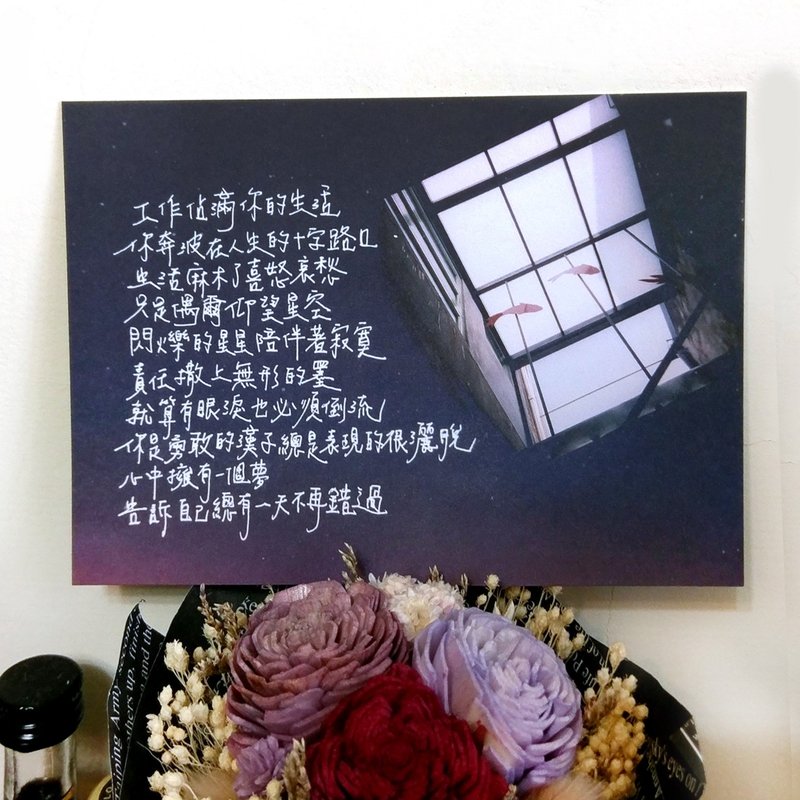 工作佔滿你的生活
你奔波在人生的十字路口
生活麻木了喜怒哀愁
只是偶爾仰望星空
閃爍的星星陪伴著寂寞
責任撒上無形的墨
就算有眼淚也必須倒流
你是勇敢的漢子總是表現的很灑脫
心中擁有一個夢
告訴自己總有一天不再錯過
Army
others up,
and the